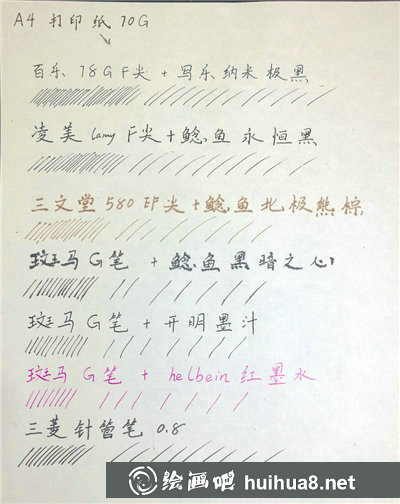 A4 打印纸 70G
百乐 78G F尖 + 写乐纳米极黑
凌美 lamy F尖 + 鲶鱼永恒黑
三文堂 580 EF尖 + 鲶鱼北极熊棕
斑马 G笔 + 鲶鱼黑暗之心
斑马 G笔 + 开明墨汁
斑马 G笔 + helbein 红墨水
三菱针管笔 0.8
绘画吧 huihua8.net